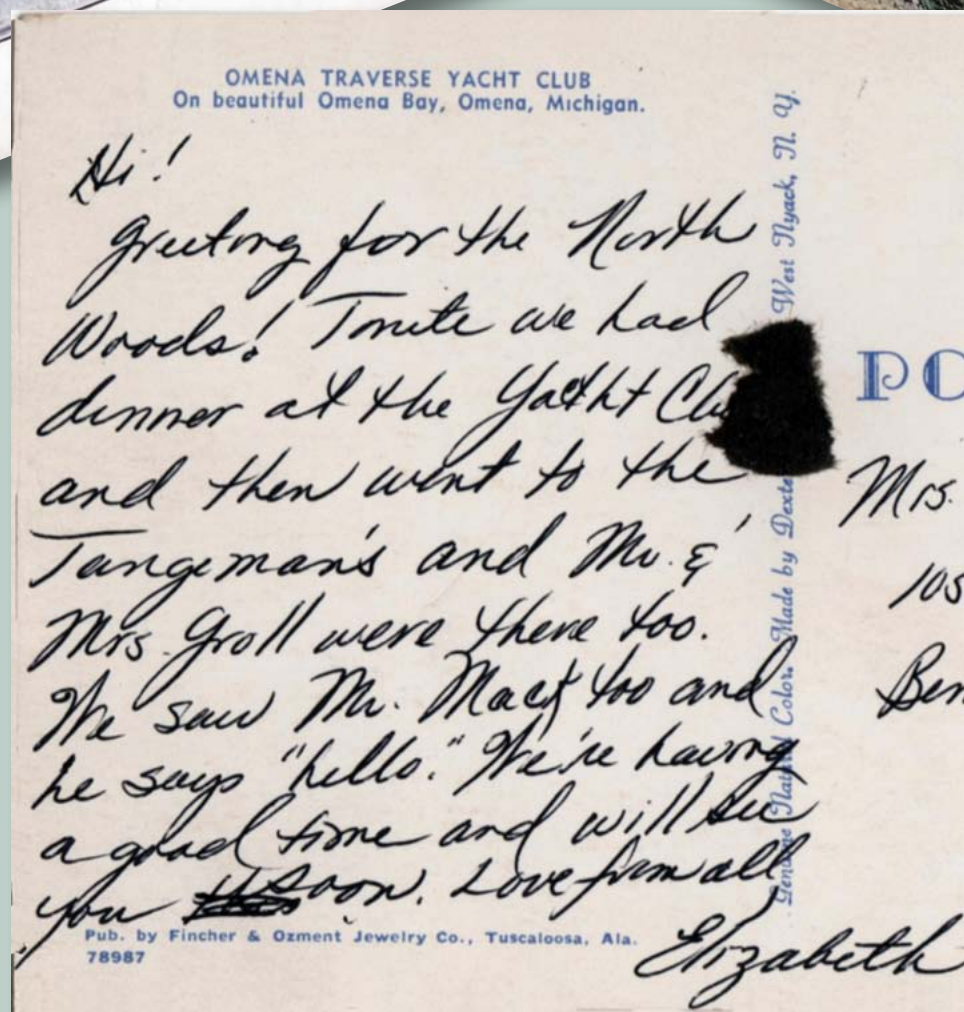 OMENA TRAVERSE YACHT CLUB
On beautiful Omena Bay, Omena, Michigan.
Hi!
Greeting for the North
Woods! Tonite we had
dinner at the Yacht Clu
and then went to the
Tangeman's and Mr. &
Mrs. Groll were there too.
We saw Mr. Macy too and
he says "hello." We're having
a good time and will see
you soon. Love from all,
Elizabeth
Pub. by Fincher & Ozment Jewelry Co., Tuscaloosa, Ala.
78987
Genuine Natural Color. Made by Dexte West Nyack, N. Y.
PO
Mrs.
105
Ben